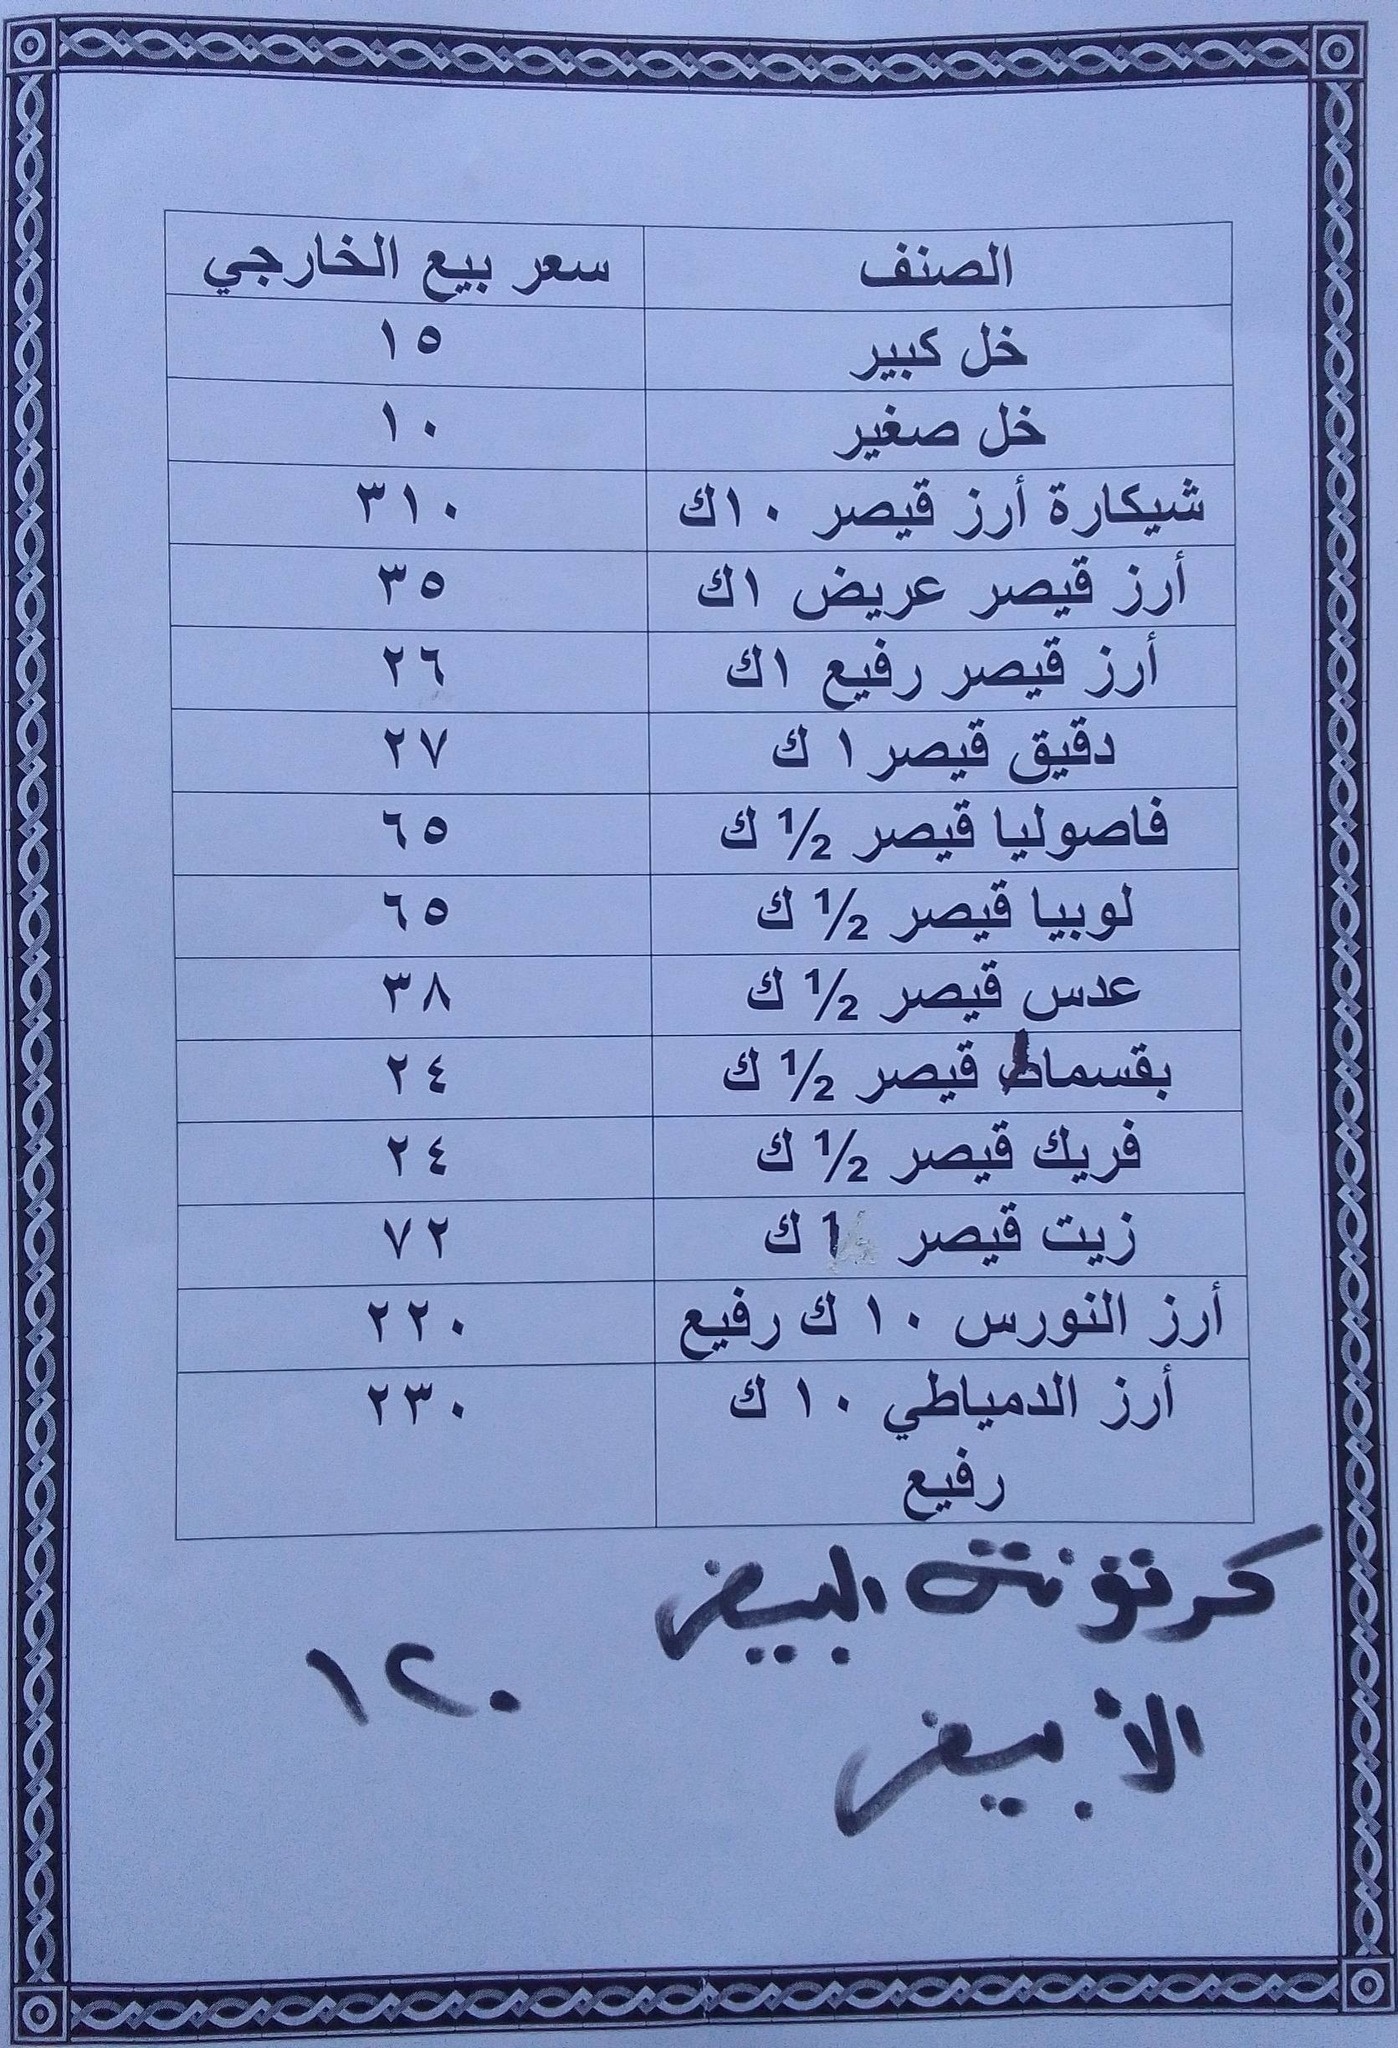 الصنف سعر بيع الخارجي
خل كبير ١٥
خل صغير ١٠
شيكارة أرز قيصر ١٠ك ٣١٠
أرز قيصر عريض ١ك ٣٥
أرز قيصر رفيع ١ك ٢٦
دقيق قيصر ١ ك ٢٧
فاصوليا قيصر ½ ك ٦٥
لوبيا قيصر ½ ك ٦٥
عدس قيصر ½ ك ٣٨
بقسماط قيصر ½ ك ٢٤
فريك قيصر ½ ك ٢٤
زيت قيصر 1 ك ٧٢
أرز النورس ١٠ ك رفيع ٢٢٠
أرز الدمياطي ١٠ ك ٢٣٠
رفيع
كرتونت البيض
الأبيض ١٢٠